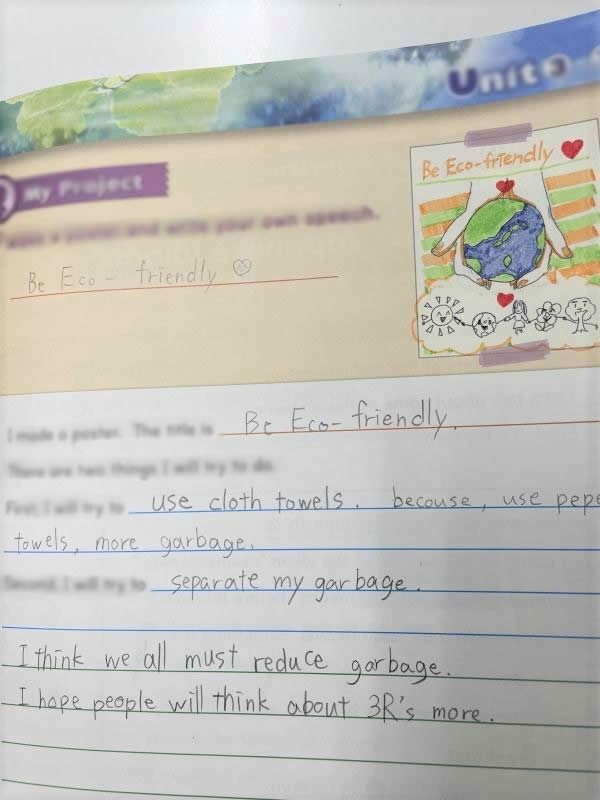 Unit 9
My Project
Make a poster and write your own speech.
Be Eco-friendly
Be Eco-friendly
I made a poster. The title is Be Eco-friendly.
There are two things I will try to do.
First, I will try to use cloth towels. becouse, use pepe
towels, more garbage.
Second, I will try to separate my garbage.
I think we all must reduce garbage.
I hope people will think about 3R's more.